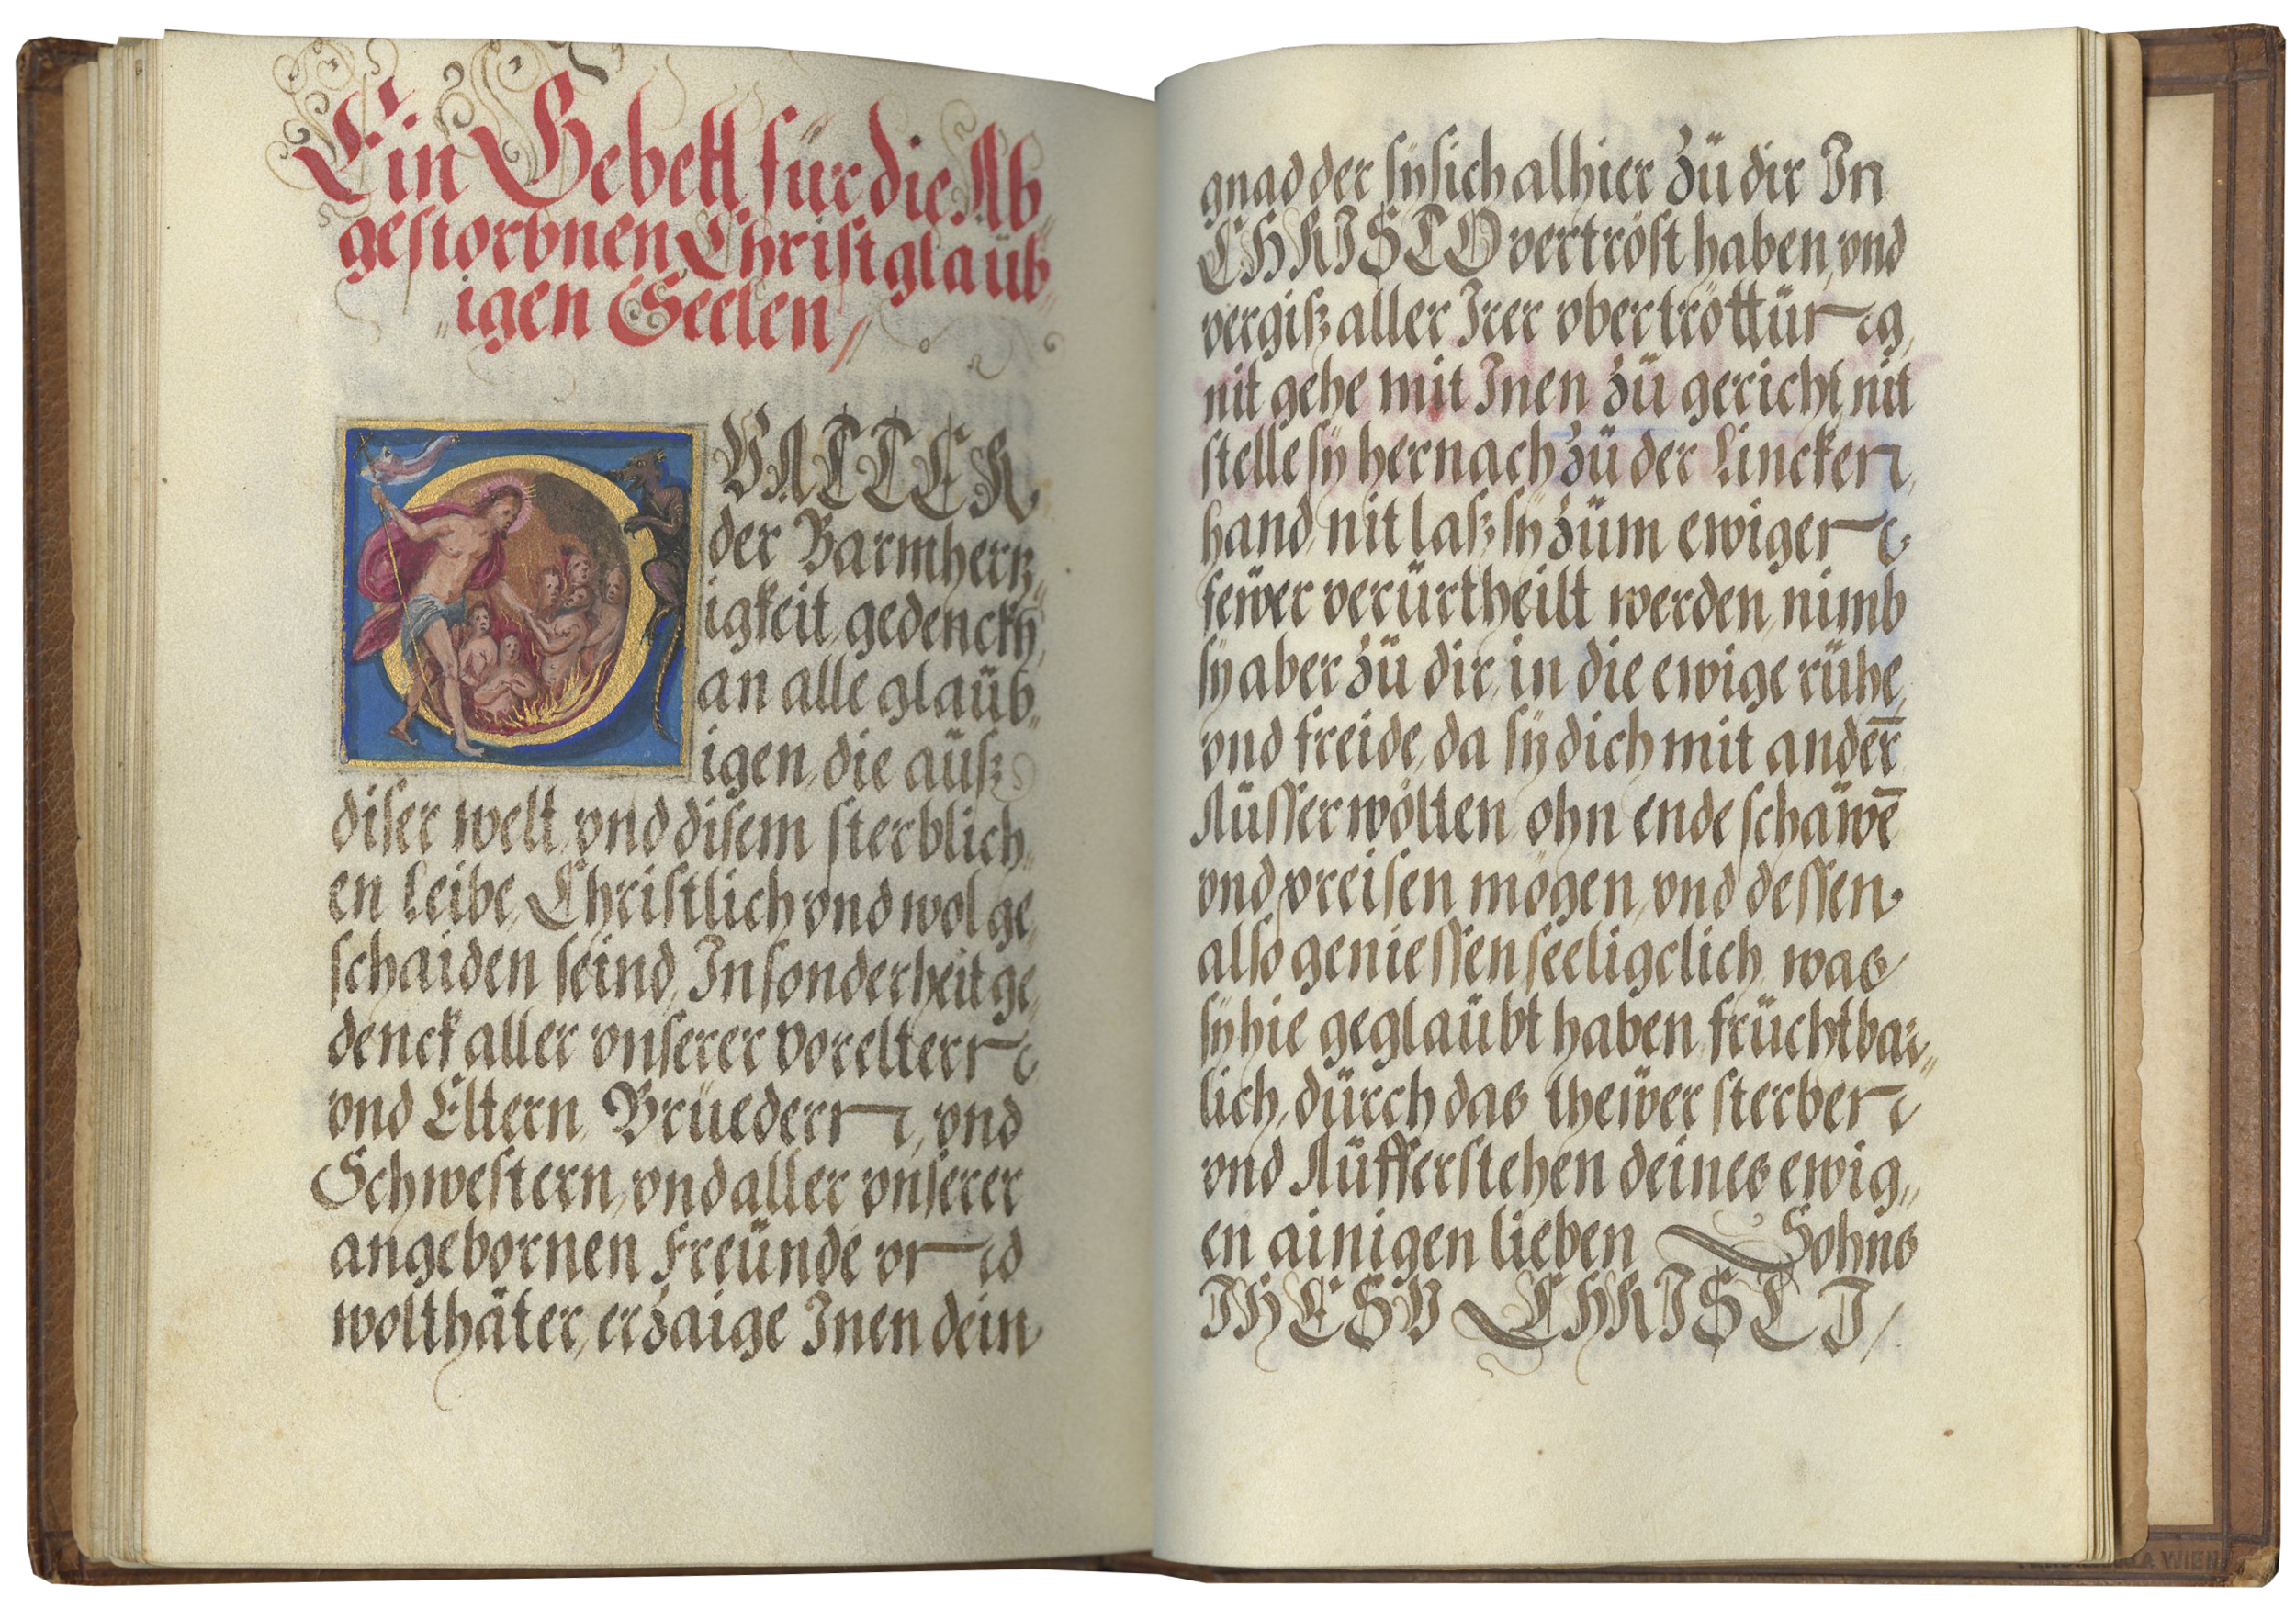 Ein Gebett für die Ab„
gestorbnen Christglaüb„
„igen Seelen/
O VATTER
der Barmhertz„
igkeit, gedenckh,
an alle glaüb„
igen, die aüß
diser welt, vnd disem sterblich„
en leibe, Christlich vnd wol ge„
schaiden seind, In sonderheit ge„
denck aller vnserer Voreltern
vnd Eltern, Brüedern, vnd
Schwestern, vnd aller vnserer
angebornen Freünde vnd
wolthäter, erzaige Inen dein
gnad der sÿ sich alhier zü dir In
CHRISTO vertröst haben, vnd
vergiß aller Irer vbertröttüng,
nit gehe mit Inen zü gericht, nit
stelle sÿ hernach zü der Lincken,
hand, nit laß sÿ züm ewigen
fewer verürtheilt werden, nimb
sÿ aber zü dir, in die ewige rühe,
vnd freide, da sÿ dich mit andern̄
Aüsserwölten ohn ende schawē
vnd preisen mögen, vnd dessen
also geniessen seeligclich, was
sÿ hie geglaübt haben, früchtbar„
lich, dürch das thewer sterben
vnd Aüfferstehen deines ewig„
en ainigen lieben Sohns
IHESV CHRISTI/
WIEN